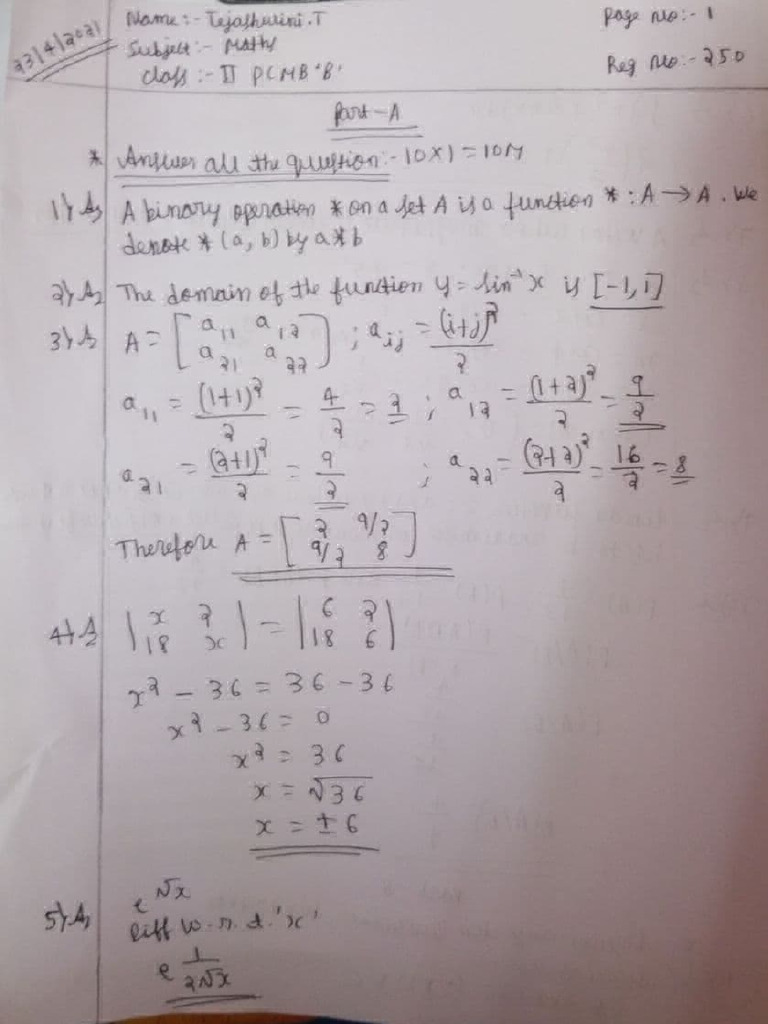 23/4/2021
Name:- Tejashwini.T
Page No:- 1
Subject:- Maths
Reg No:- 250
Class:- II PCMB 'B'
Part-A
* Answer all the question:- 10×1=10M
1) A) A binary operation * on a set A is a function * : A → A. We
denote * (a, b) by a * b
2) A) The domain of the function y = sin⁻¹ x is [-1, 1]
3) A) A = [a₁₁ a₁₂; a₂₁ a₂₂] ; aᵢⱼ = (i+j)²/2
a₁₁ = (1+1)²/2 = 4/2 = 2 ; a₁₂ = (1+2)²/2 = 9/2
a₂₁ = (2+1)²/2 = 9/2 ; a₂₂ = (2+2)²/2 = 16/2 = 8
Therefore A = [2 9/2; 9/2 8]
4) A) |x 2; 18 x| = |6 2; 18 6|
x² - 36 = 36 - 36
x² - 36 = 0
x² = 36
x = √36
x = ± 6
5) A) e^√x
Diff w.r.t. 'x'
e 1/2√x